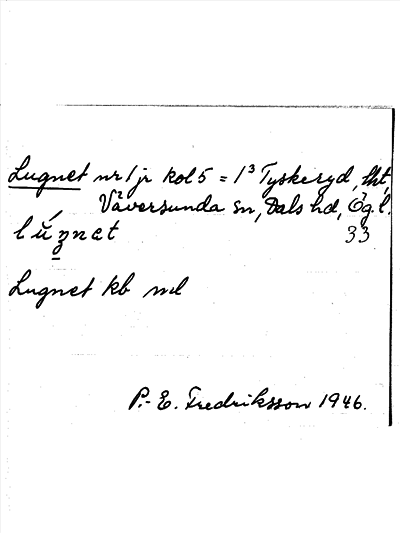 Lugnet nr 1 jr kol 5 = 1³ Tyskeryd, lht,
Väversunda sn, Dals hd, Ög. l.
lúŋnet 33
Lugnet kb nd
P.-E. Fredriksson 1946.